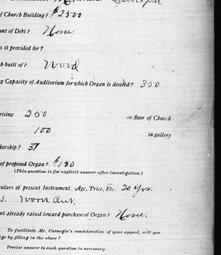 of Church Building? $2500
ent of Debt? None
is it provided for?
ch built of? Wood
ng Capacity of Auditorium for which Organ is desired? 350
rising 250 on floor of Church
100 in gallery
bership? 37
of proposed Organ? $
(This question is for explicit answer after investigation.)
culars of present Instrument, Age, Price, Etc. 20 Yrs.
Worn Out.
nt already raised toward purchase of Organ? None.
To facilitate Mr. Carnegie's consideration of your appeal, will you
ge by filling in the above?
Precise answer to each question is necessary.